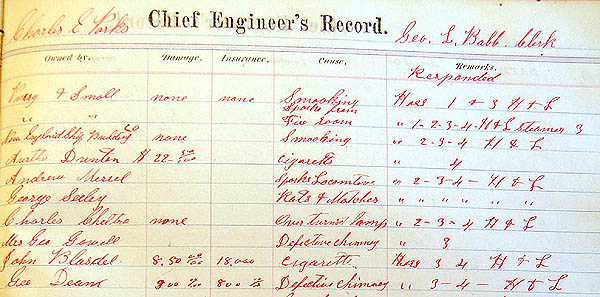 Charles E Parks Chief Engineer's Record. Geo. L. Babb Clerk
Owned by. Damage. Insurance. Cause. Remarks.
Responded
Percy & Small none none Smooking Hose 1 & 3 H & L
" " Sparks from
Fire room " 1-2-3-4 H & L Steamer 3
New England Ship Building Co none Smooking " 2-3-4 H & L
Dunton H 22 00/00 Cigaretts " 4
Andrew Merrel Sparks Locomtive " 2-3-4- H & L
George Seeley Rats & Matches " " " " " "
Charles none Over turned lamp " 2-3-4 H & L
Mrs Geo Gowell Defective chimney " 3
John Blasdel 8.50 00/00 18,000 Cigaretts Hose 3 4 H & L
Geo Deans 800 800 Defective Chimney " 3-4- H & L